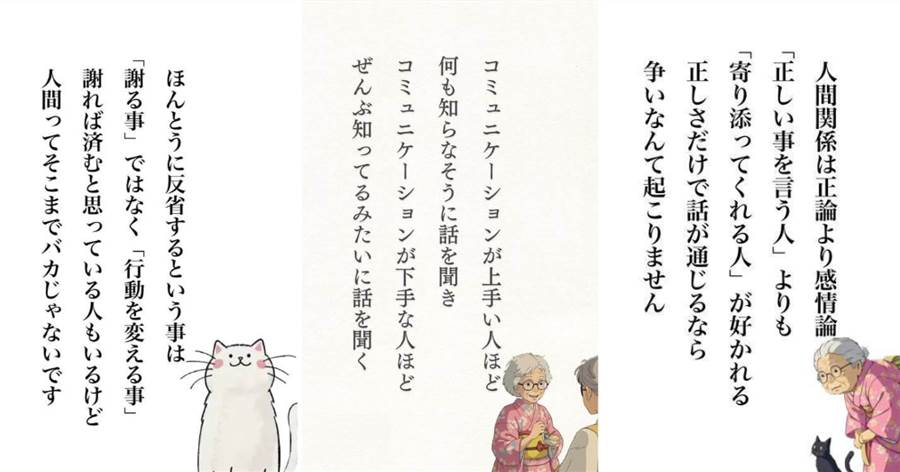 人間関係は正論より感情論
「正しい事を言う人」よりも
「寄り添ってくれる人」が好かれる
正しさだけで話が通じるなら
争いなんて起こりません
コミュニケーションが上手い人ほど
何も知らなそうに話を聞き
コミュニケーションが下手な人ほど
ぜんぶ知ってるみたいに話を聞く
ほんとうに反省するという事は
「謝る事」ではなく「行動を変える事」
謝れば済むと思っている人もいるけど
人間ってそこまでバカじゃないです